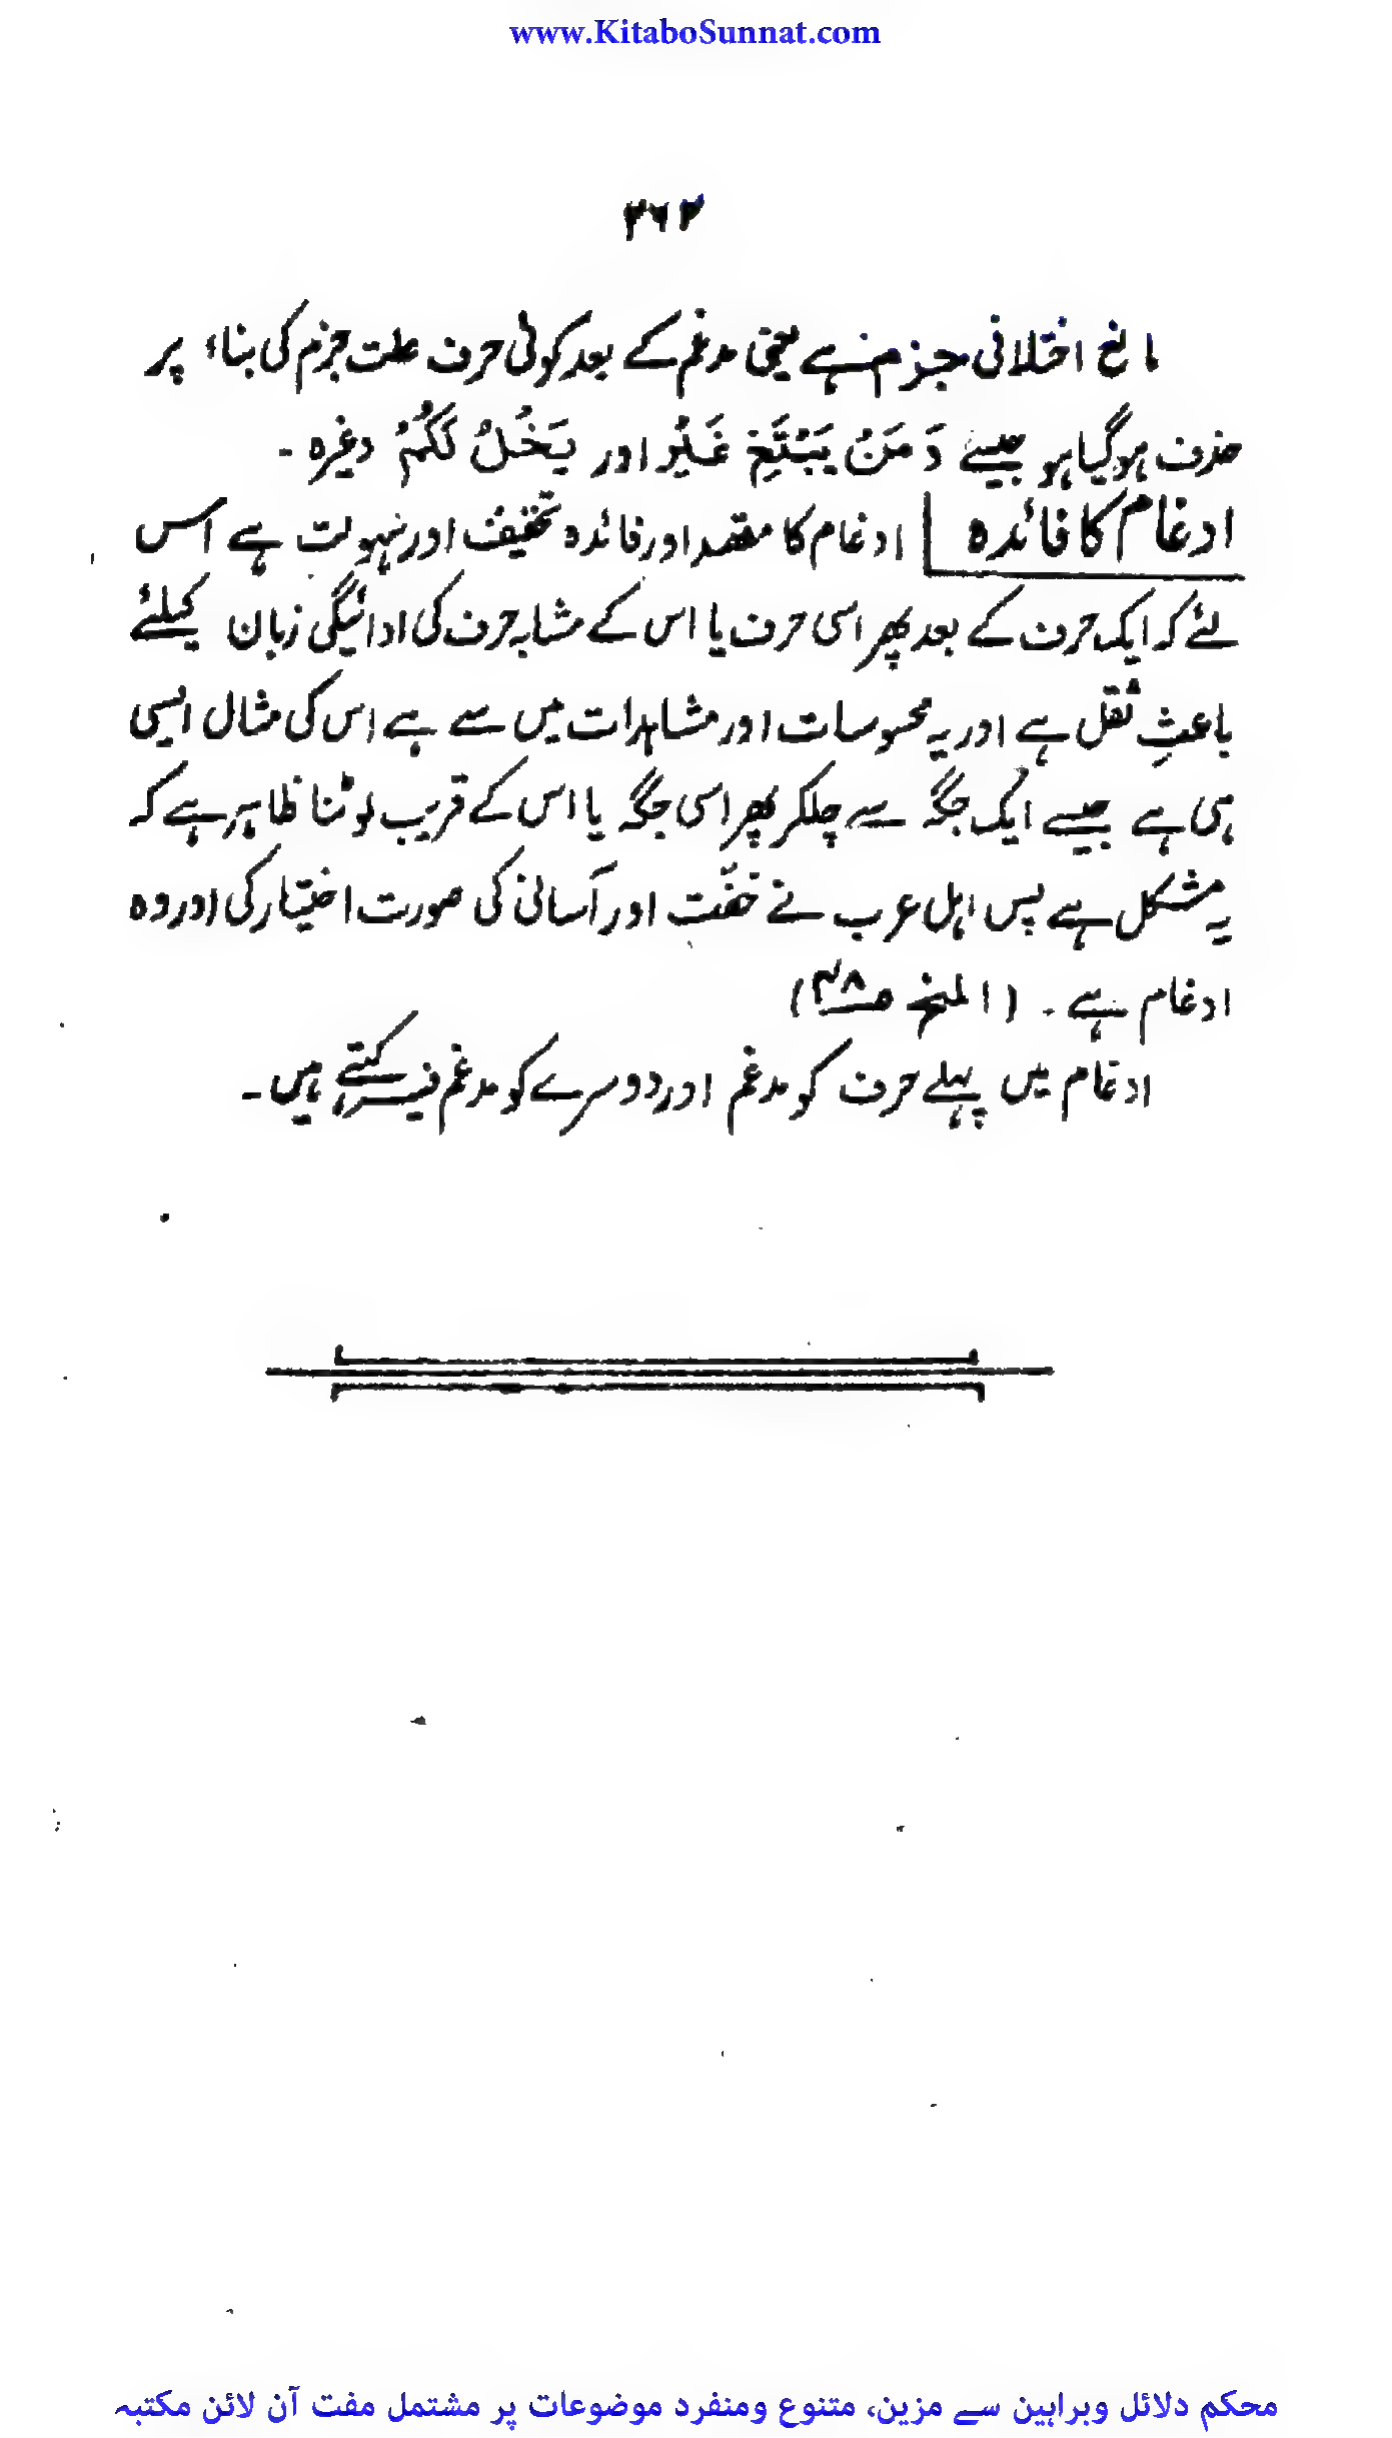 www.KitaboSunnat.com
۳۶۲
مانع اختلافی جزم ہے یعنی مدغم کے بعد کوئی حرف علت جزم کی بناء پر
حذف ہوگیا ہو جیسے وَ مَنْ یَبْتَغِ غَیْرَ اور یَخْلُ لَکُمْ وغیرہ ۔
ادغام کا فائدہ ادغام کا مقصد اور فائدہ تخفیف اور سہولت ہے اس
لئے کہ ایک حرف کے بعد پھر اسی حرف یا اس کے مشابہ حرف کی ادائیگی زبان کیلئے
باعثِ ثقل ہے اور یہ محسوسات اور مشاہدات میں سے ہے اس کی مثال ایسی
ہی ہے جیسے ایک جگہ سے چلکر پھر اسی جگہ یا اس کے قریب لوٹنا ظاہر ہے کہ
یہ مشکل ہے پس اہل عرب نے خفّت اور آسانی کی صورت اختیار کی اور وہ
ادغام ہے ۔ (المنح ص۴۸)
ادغام میں پہلے حرف کو مدغم اور دوسرے کو مدغم فیہ کہتے ہیں ۔
محکم دلائل وبراہین سے مزین، متنوع ومنفرد موضوعات پر مشتمل مفت آن لائن مکتبہ